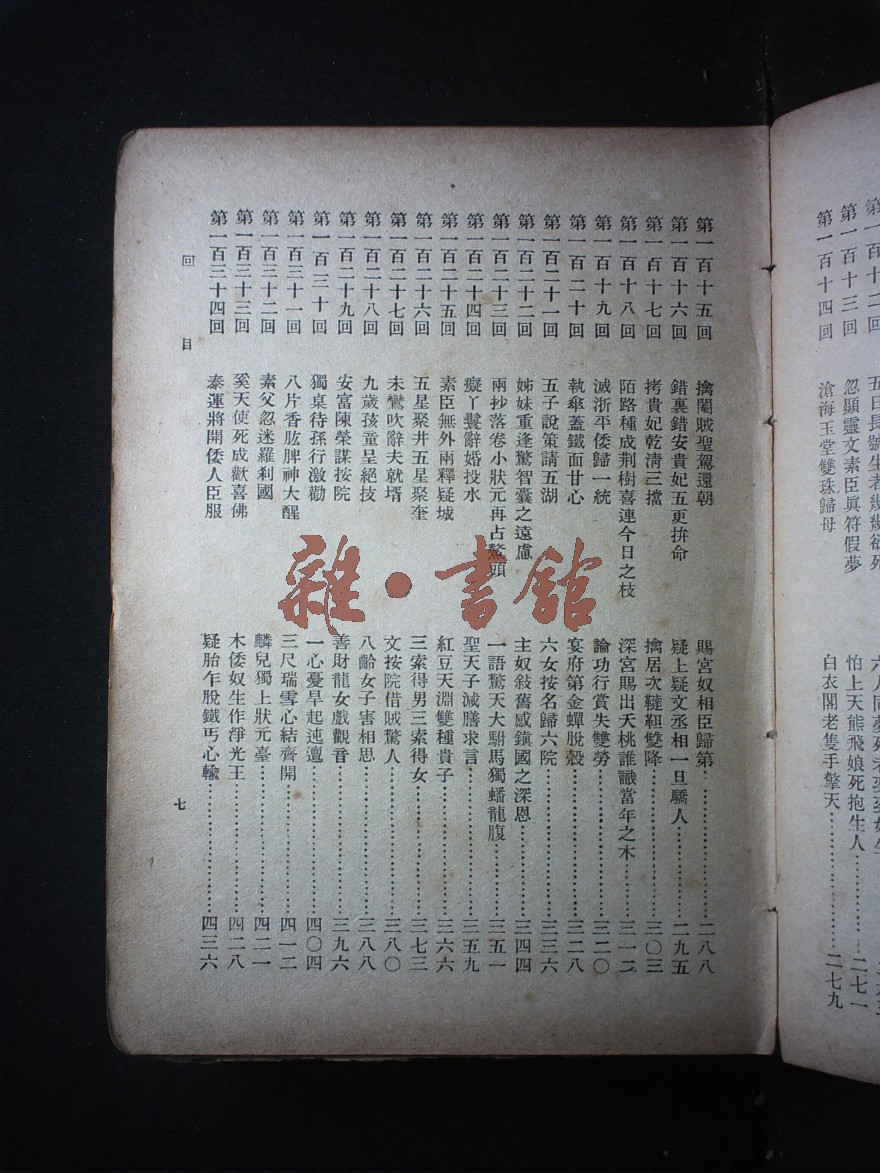 第一百十二回　五日長號生者幾幾欲死
第一百十三回　忽顯靈文素臣眞符假夢　怕上天熊飛娘死抱生人……二七一
第一百十四回　滄海玉堂雙珠歸母　白衣閣老隻手擎天……二七九
第一百十五回　擒閹賊聖駕還朝　賜宮奴相臣歸第……二八八
第一百十六回　錯裏錯安貴妃五更拚命　疑上疑文丞相一旦驕人……二九五
第一百十七回　拷貴妃乾淸三擋　擒居次韃靼雙降……三〇三
第一百十八回　陌路種成荆樹喜連今日之枝　深宮賜出夭桃誰識當年之木……三一二
第一百十九回　滅浙平倭歸一統　論功行賞失雙勞……三二〇
第一百二十回　執傘蓋鐵面甘心　宴府第金蟬脫殼……三二八
第一百二十一回　五子說策請五湖　六女按名歸六院……三三六
第一百二十二回　姊妹重逢驚智囊之遠慮　主奴敍舊感鎭國之深恩……三四四
第一百二十三回　兩抄落卷小狀元再占鰲頭　一語驚天大駙馬獨蟠龍腹……三五一
第一百二十四回　癡丫鬟辭婚投水　聖天子減膳求言……三五九
第一百二十五回　素臣無外兩釋疑城　紅豆天淵雙種貴子……三六六
第一百二十六回　五星聚井五星聚奎　三索得男三索得女……三七三
第一百二十七回　未鸞吹辭夫就壻　文按院借賊驚人……三八〇
第一百二十八回　九歲孩童呈絕技　八齡女子害相思……三八八
第一百二十九回　安富陳榮謀按院　善財龍女戲觀音……三九六
第一百三十回　獨桌待孫行激勸　一心憂旱起迍邅……四〇四
第一百三十一回　八片香肱脾神大醒　三尺瑞雪心結齊開……四一二
第一百三十二回　素父忽迷羅利國　麟兒獨上狀元臺……四二一
第一百三十三回　奚天使死成歡喜佛　木倭奴生作淨光王……四二八
第一百三十四回　泰運將開倭人臣服　疑胎乍脫鐵丐心輸……四三六
回目　七
雜·書館